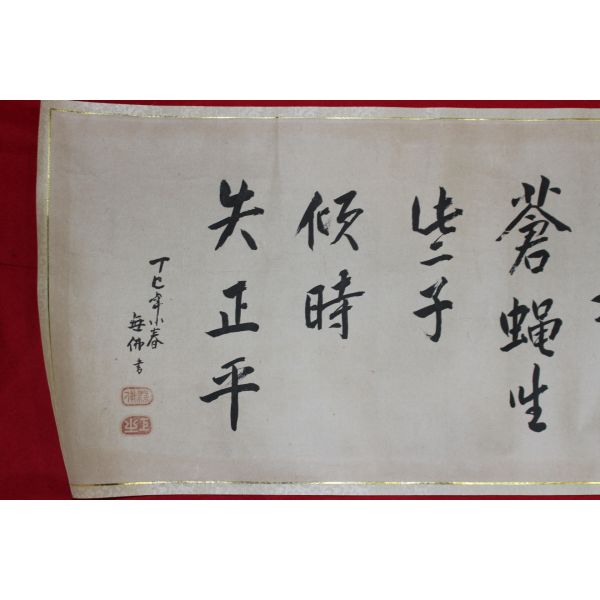 蒼蝿坐
些子
傾時
失正平
丁巳年小春
無佛書